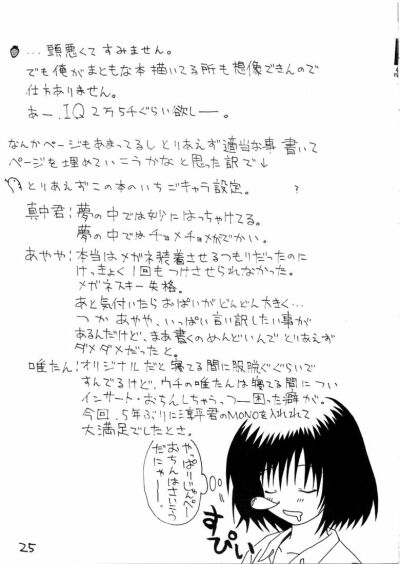 …頭悪くてすみません。
でも俺がまともな本描いてる所も想像できんので
仕方ありません。
あー.IQ2万5千ぐらい欲しー。
なんかページもあまってるし とりあえず適当な事 書いて
ページを埋めていこうかなと思った訳で↓
とりあえずこの本のいちごキャラ設定。 ?
真中君:夢の中では妙にはっちゃけてる。
夢の中ではチョメチョメがでかい。
あやや:本当はメガネ装着させるつもりだったのに
けっきょく1回もつけさせられなかった。
メガネスキー失格。
あと気付いたらおぱいがどんどん大きく…
つか あやや、いっぱい言い訳したい事が
あるんだけど、まあ書くのめんどいんで とりあえず
ダメダメだったと。
唯たん:オリジナルだと寝てる間に服脱ぐぐらいで
すんでるけど、ウチの唯たんは寝てる間につい
インサート・おちんしちゃうっつー困った癖が。
今回.5年ぶりに淳平君のMONOを入れれて
大満足でしたとさ。
やっぱりじゅんぺー
おちんはさいこう
だにゃー
すぴぃ
25